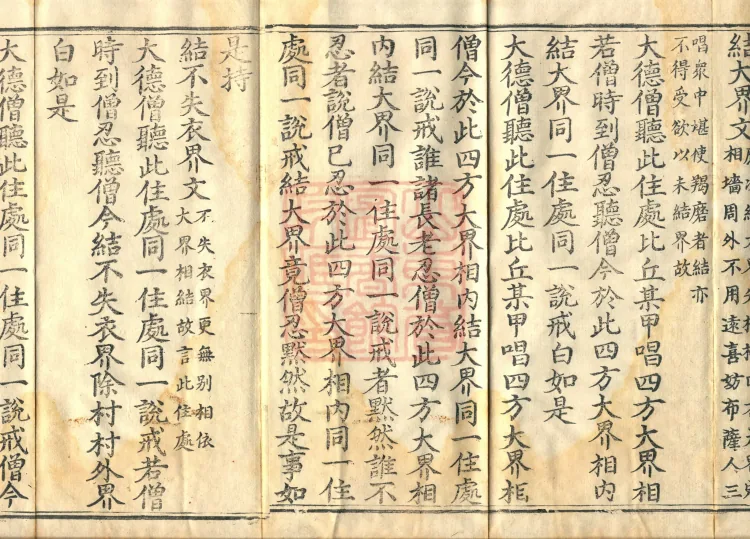 結大界文
相墻周外不用遠喜妨布薩人三
唱衆中堪使羯磨者結亦
不得受欲以未結界故
大德僧聽此住處比丘某甲唱四方大界相
若僧時到僧忍聽僧今於此四方大界相内
結大界同一住處同一說戒白如是
大德僧聽此住處比丘某甲唱四方大界相
僧今於此四方大界相内結大界同一住處
同一說戒誰諸長老忍僧於此四方大界相
内結大界同一住處同一說戒者黙然誰不
忍者說僧已忍於此四方大界相内同一住
處同一說戒結大界竟僧忍黙然故是事如
是持
結不失衣界文
不失衣界更無別相依
大界相結故言此住處
大德僧聽此住處同一住處同一說戒若僧
時到僧忍聽僧今結不失衣界除村村外界
白如是
大德僧聽此住處同一住處同一說戒僧今